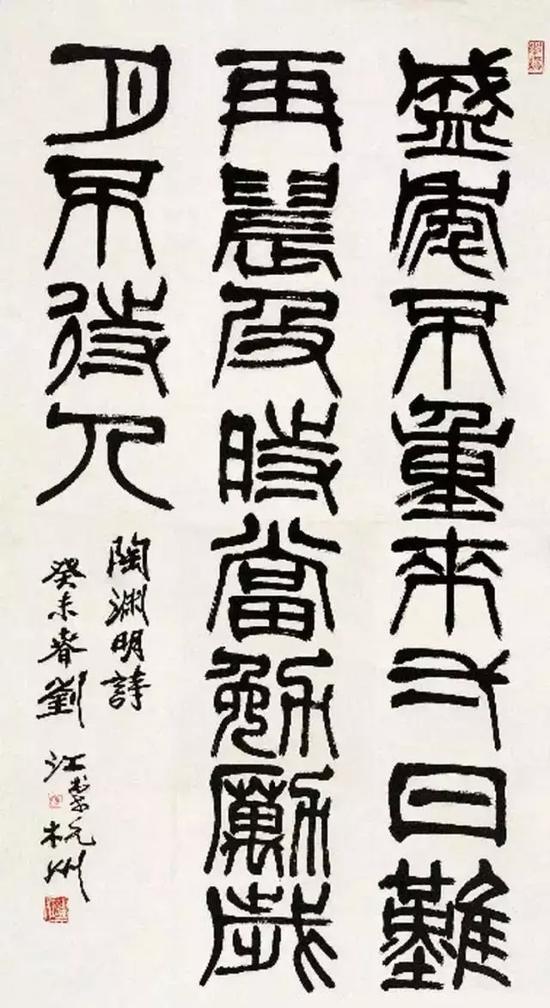 盛年不重來一日難
再晨及時當勉勵歲
月不待人
陶淵明詩
癸未春劉江書於杭州